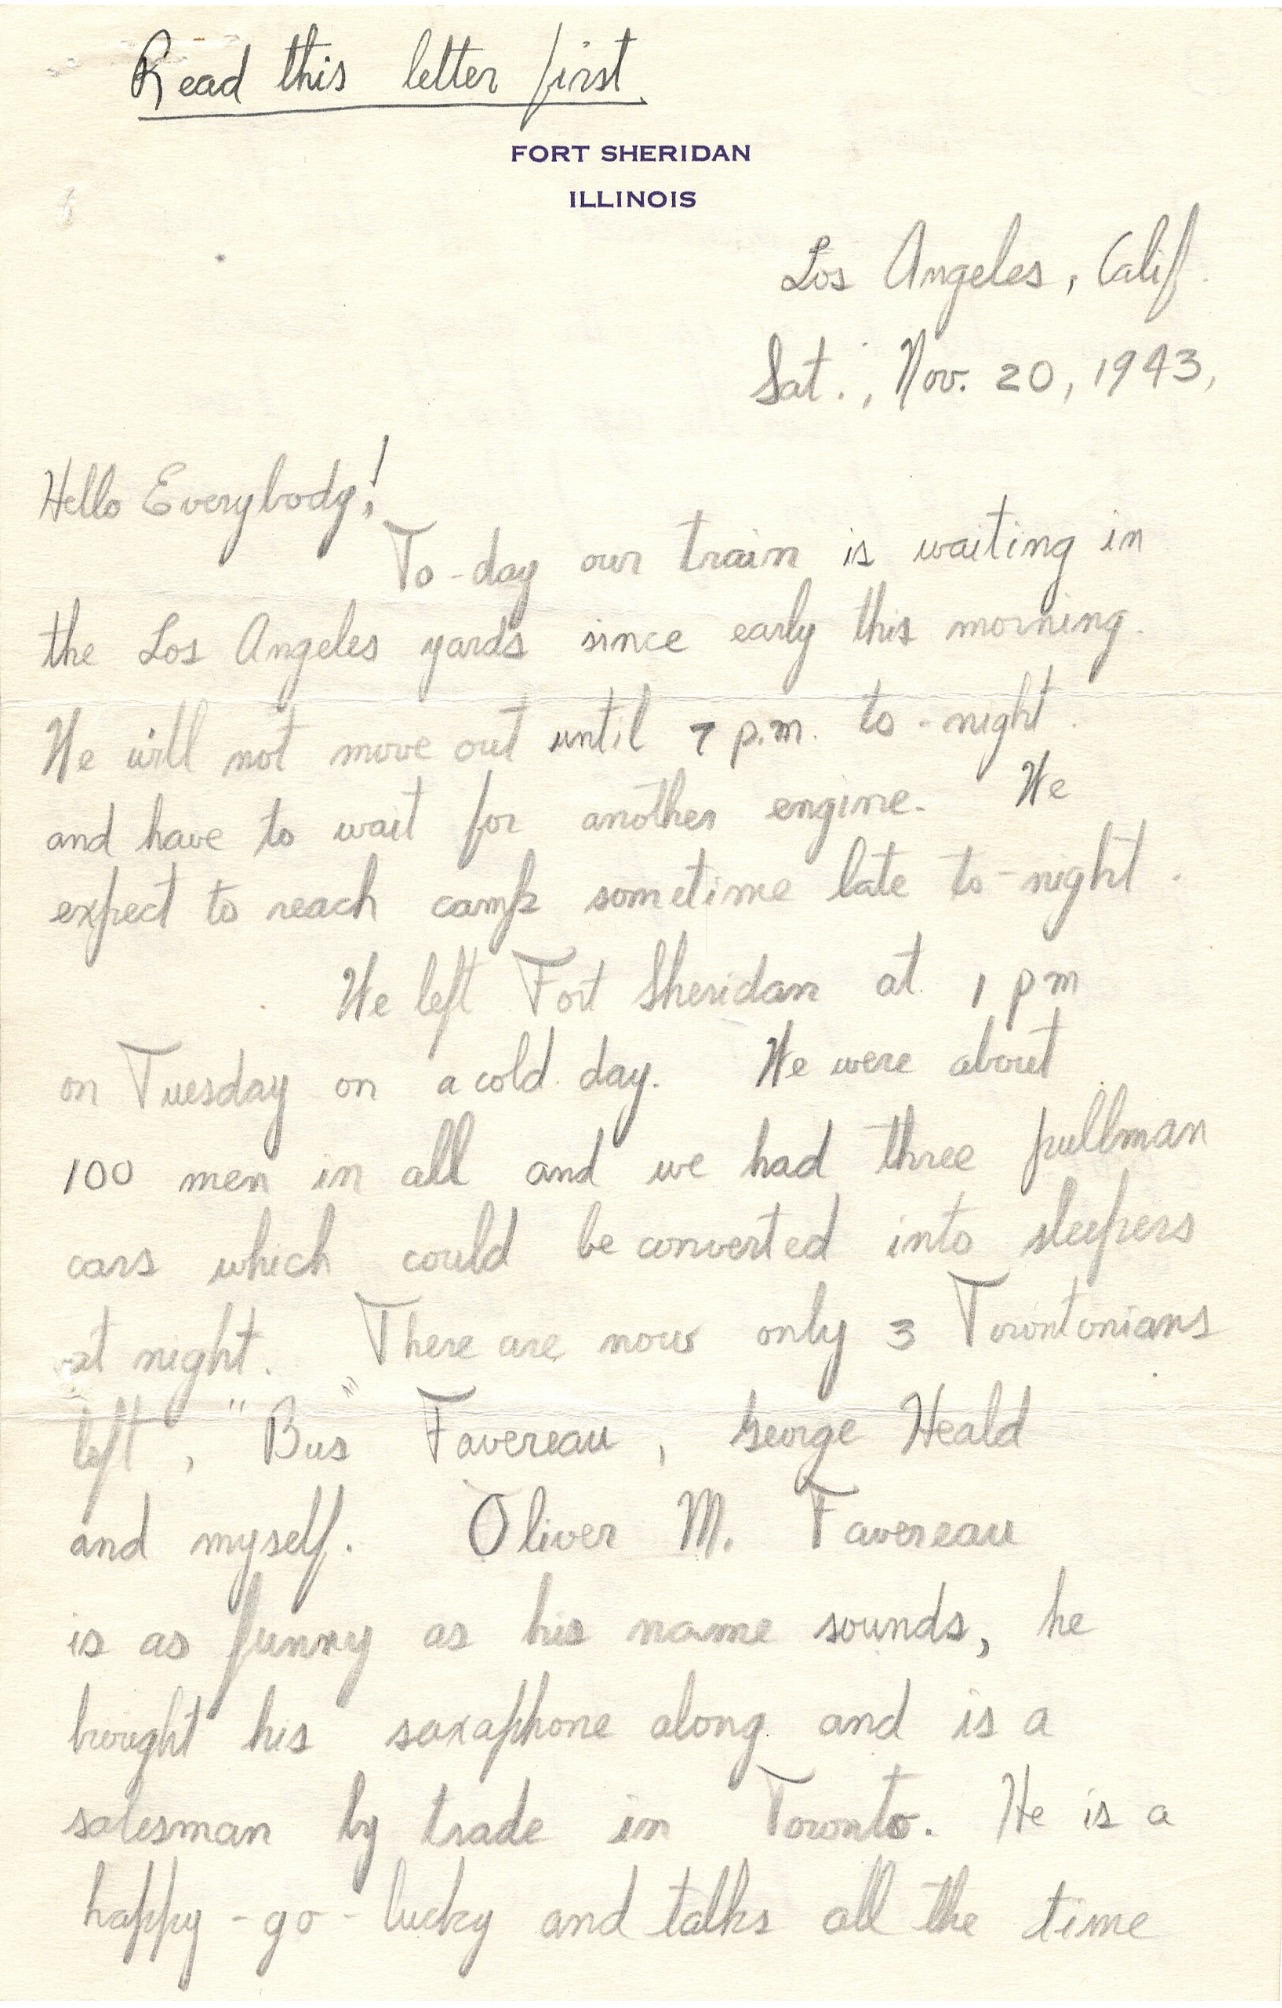 Read this letter first.
FORT SHERIDAN
ILLINOIS
Los Angeles, Calif.
Sat., Nov. 20, 1943,
Hello Everybody!
To-day our train is waiting in
the Los Angeles yards since early this morning.
We will not move out until 7 p.m. to-night.
and have to wait for another engine. We
expect to reach camp sometime late to-night.
We left Fort Sheridan at 1 pm
on Tuesday on a cold day. We were about
100 men in all and we had three pullman
cars which could be converted into sleepers
at night. There are now only 3 Torontonians
left, "Bus" Favereau, George Heald
and myself. Oliver M. Favereau
is as funny as his name sounds, he
brought his saxaphone along and is a
salesman by trade in Toronto. He is a
happy-go-lucky and talks all the time